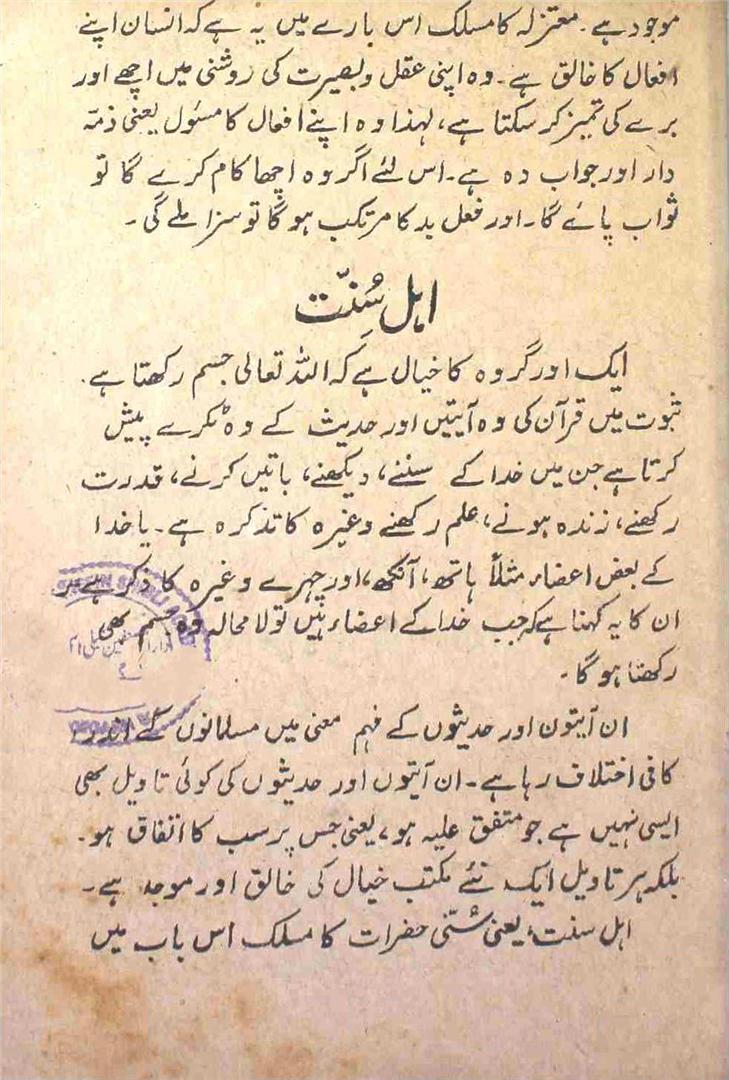 موجود ہے۔ معتزلہ کا مسلک اس بارے میں یہ ہے کہ انسان اپنے
افعال کا خالق ہے۔ وہ اپنی عقل و بصیرت کی روشنی میں اچھے اور
برے کی تمیز کر سکتا ہے، لہذا وہ اپنے افعال کا مسئول یعنی ذمّہ
دار اور جواب دہ ہے۔ اس لئے اگر وہ اچھا کام کرے گا تو
ثواب پائے گا۔ اور فعل بد کا مرتکب ہوگا تو سزا ملے گی۔
اہل سُنّتِ
ایک اور گروہ کا خیال ہے کہ اللہ تعالی جسم رکھتا ہے۔
ثبوت میں قرآن کی وہ آیتیں اور حدیث کے وہ ٹکرے پیش
کرتا ہے جن میں خدا کے سننے، دیکھنے، باتیں کرنے، قدرت
رکھنے، زندہ ہونے، علم رکھنے وغیرہ کا تذکرہ ہے۔ یا خدا
کے بعض اعضاء مثلاً ہاتھ، آنکھ، اور چہرے وغیرہ کا ذکر ہے۔
ان کا یہ کہنا ہے کہ جب خدا کے اعضاء ہیں تو لا محالہ وہ جسم بھی
رکھتا ہوگا۔
ان آیتون اور حدیثوں کے فہم معنی میں مسلمانوں کے اندر
کافی اختلاف رہا ہے۔ ان آیتوں اور حدیثوں کی کوئی تاویل بھی
ایسی نہیں ہے جو متفق علیہ ہو، یعنی جس پر سب کا اتفاق ہو۔
بلکہ ہر تاویل ایک نئے مکتب خیال کی خالق اور موجد ہے۔
اہل سنت، یعنی سُنّی حضرات کا مسلک اس باب میں